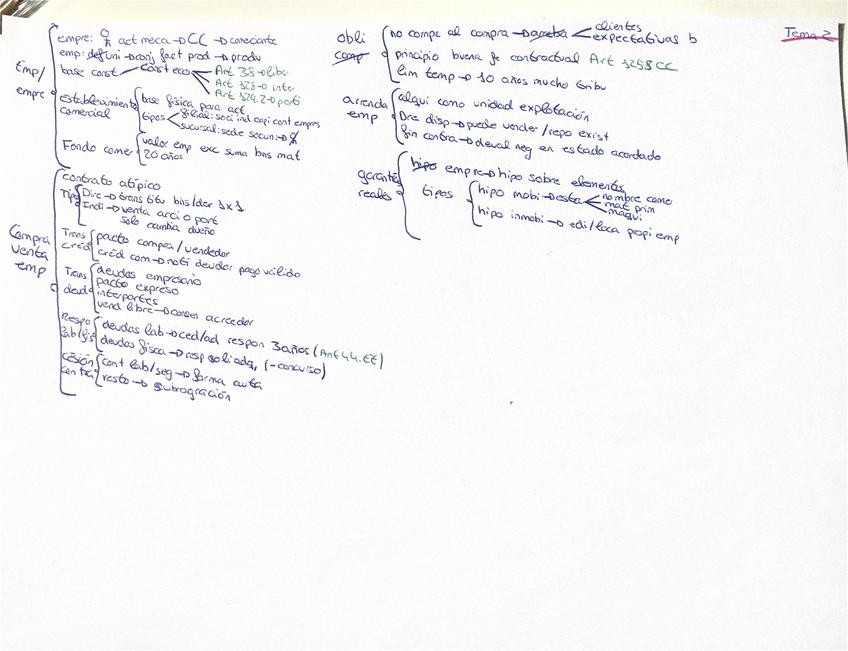 Tema 2
Emp/
empre
empre: act meca → CC → comerciante
emp: def uni → conj fact prod → produ
base const — const eco
Art 38 → libe
Art 128 → inter
Art 129.2 → parti
Establecimiento
comercial
base física para act
tipos
filial: soci ind capi cont empres
sucursal: sede secun →
Fondo comer
valor emp exc suma bns mat
20 años
Compra
venta
emp
contrato atípico
Tipo
Dire → trans titu bns/der 1x1
Indi → venta acci o part
solo cambia dueño
Trans
créd
pacto compra/vendedor
créd com → noti deudor pago válido
Trans
deud
deudas empresario
pacto expreso
interpartes
vend libre → consen acreedor
Respo
lab/fis
deudas lab → ced/ad respon 3 años (Art 44. ET)
deudas fisca → resp soliada, (-concurso)
cesión
contra
cont lab/seg → forma auto
resto → subrogración
obli
comp
no compe al compra →
clientes
expectativas b
principio buena fe contractual Art 1258 CC
lim temp → 10 años mucho tribu
arrenda
emp
alqui como unidad explotación
Dre disp → puede vender/repo exist
fin contra → deval neg en estado acordado
garantes
reales
hipo empre → hipo sobre elementos
tipos
hipo mobi →
nombre come
mat prim
maqui
hipo inmobi → edi/loca propi emp